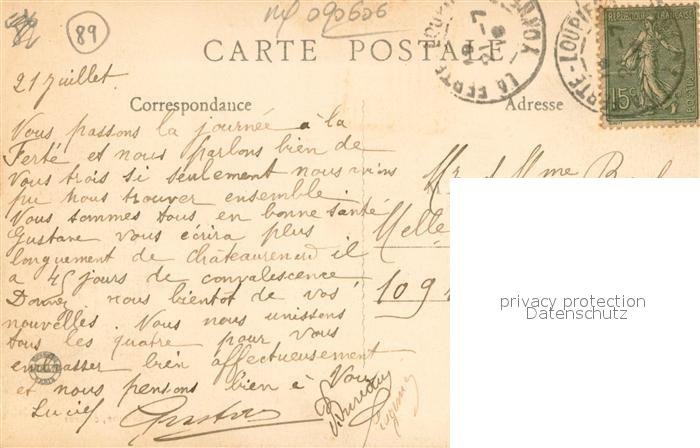 89
CARTE POSTALE
LA FERTE-LOUPIERE
YONNE
LA FERTE-LOUPIERE
REPUBLIQUE FRANÇAISE
15c
POSTES
21 juillet.
Correspondance
Adresse
Nous passons la journée à la
Ferté et nous parlons bien de
vous trois si seulement nous avions
pu nous trouver ensemble.
Nous sommes tous en bonne santé
Gustave vous écrira plus
longuement de châteaurenard il
a 45 jours de convalescence
Donnez nous bientôt de vos
nouvelles. Nous nous unissons
tous les quatre pour vous
embrasser bien affectueusement
et nous pensons bien à Vous
Lucie
Mr et Mme
Melle
109
privacy protection
Datenschutz